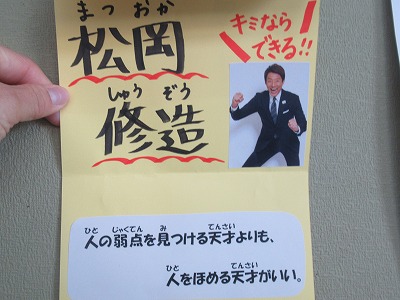 まつ おか
松岡
しゅう ぞう
修造
キミなら
できる!!
ひと じゃくてん み てんさい
人の弱点を見つける天才よりも、
ひと てんさい
人をほめる天才がいい。